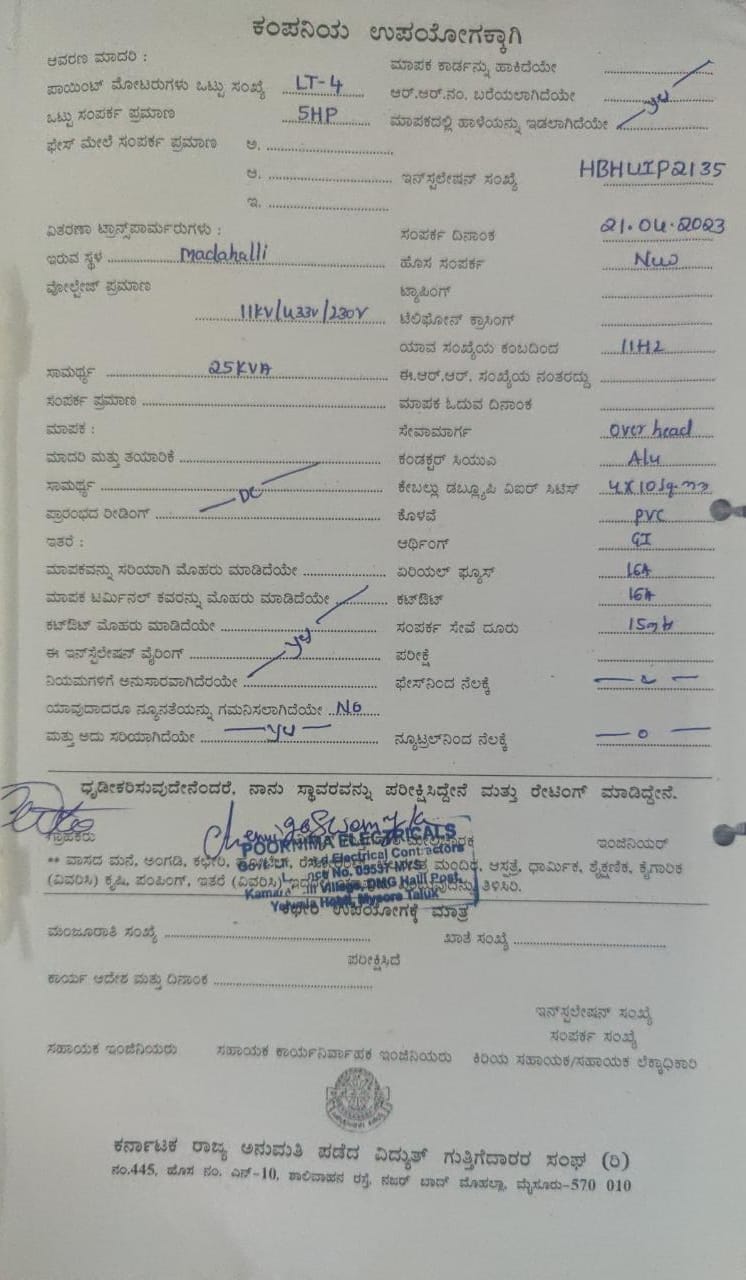 ಕಂಪನಿಯ ಉಪಯೋಗಕ್ಕಾಗಿ
ಆವರಣ ಮಾದರಿ :
ಮಾಪಕ ಕಾರ್ಡನ್ನು ಹಾಕಿದೆಯೇ
ಪಾಯಿಂಟ್ ಮೋಟರುಗಳು ಒಟ್ಟು ಸಂಖ್ಯೆ LT-4
ಆರ್.ಆರ್.ನಂ. ಬರೆಯಲಾಗಿದೆಯೇ
ಒಟ್ಟು ಸಂಪರ್ಕ ಪ್ರಮಾಣ 5HP
ಮಾಪಕದಲ್ಲಿ ಹಾಳೆಯನ್ನು ಇಡಲಾಗಿದೆಯೇ
ಫೇಸ್ ಮೇಲೆ ಸಂಪರ್ಕ ಪ್ರಮಾಣ ಅ.
ಆ.
ಇನ್‌ಸ್ಟಲೇಷನ್ ಸಂಖ್ಯೆ HBHUIP2135
ಇ.
ವಿತರಣಾ ಟ್ರಾನ್ಸ್‌ಪಾರ್ಮರುಗಳು :
ಸಂಪರ್ಕ ದಿನಾಂಕ 21.04.2023
ಇರುವ ಸ್ಥಳ Madahalli
ಹೊಸ ಸಂಪರ್ಕ New
ವೋಲ್ಟೇಜ್ ಪ್ರಮಾಣ
ಟ್ಯಾಪಿಂಗ್
11KV/433V/230V
ಟೆಲಿಫೋನ್ ಕ್ರಾಸಿಂಗ್
ಯಾವ ಸಂಖ್ಯೆಯ ಕಂಬದಿಂದ
ಸಾಮರ್ಥ್ಯ 25KVA
ಈ.ಆರ್.ಆರ್. ಸಂಖ್ಯೆಯ ನಂತರದ್ದು
ಸಂಪರ್ಕ ಪ್ರಮಾಣ
ಮಾಪಕ ಓದುವ ದಿನಾಂಕ
ಮಾಪಕ :
ಸೇವಾಮಾರ್ಗ Over head
ಮಾದರಿ ಮತ್ತು ತಯಾರಿಕೆ
ಕಂಡಕ್ಟರ್ ಸಿಯುಎ Alu
ಸಾಮರ್ಥ್ಯ DC
ಕೇಬಲ್ಲು ಡಬ್ಲ್ಯೂಪಿ ವಿಐರ್ ಸಿಟಿಸ್ 4X10Sq.mm
ಪ್ರಾರಂಭದ ರೀಡಿಂಗ್
ಕೊಳವೆ PVC
ಇತರೆ :
ಆರ್ಥಿಂಗ್ GI
ಮಾಪಕವನ್ನು ಸರಿಯಾಗಿ ಮೊಹರು ಮಾಡಿದೆಯೇ
ಏರಿಯಲ್ ಫ್ಯೂಸ್ 16A
ಮಾಪಕ ಟರ್ಮಿನಲ್ ಕವರನ್ನು ಮೊಹರು ಮಾಡಿದೆಯೇ
ಕಟ್‌ಔಟ್ 16A
ಕಟ್‌ಔಟ್ ಮೊಹರು ಮಾಡಿದೆಯೇ
ಸಂಪರ್ಕ ಸೇವೆ ದೂರು
ಈ ಇನ್‌ಸ್ಟಲೇಷನ್ ವೈರಿಂಗ್
ಪರೀಕ್ಷೆ
ನಿಯಮಗಳಿಗೆ ಅನುಸಾರವಾಗಿದೆರಯೇ
ಫೇಸ್‌ನಿಂದ ನೆಲಕ್ಕೆ
ಯಾವುದಾದರೂ ನ್ಯೂನತೆಯನ್ನು ಗಮನಿಸಲಾಗಿದೆಯೇ No
ಮತ್ತು ಅದು ಸರಿಯಾಗಿದೆಯೇ
ನ್ಯೂಟ್ರಲ್‌ನಿಂದ ನೆಲಕ್ಕೆ 0
ಧೃಡೀಕರಿಸುವುದೇನೆಂದರೆ, ನಾನು ಸ್ಥಾವರವನ್ನು ಪರೀಕ್ಷಿಸಿದ್ದೇನೆ ಮತ್ತು ರೇಟಿಂಗ್ ಮಾಡಿದ್ದೇನೆ.
ಗ್ರಾಹಕರು
ಇಂಜಿನಿಯರ್
POORNIMA ELECTRICALS
Electrical Contractors
** ವಾಸದ ಮನೆ, ಅಂಗಡಿ, ಕಛೇರಿ, ಮಂದಿರ, ಆಸ್ಪತ್ರೆ, ಧಾರ್ಮಿಕ, ಶೈಕ್ಷಣಿಕ, ಕೈಗಾರಿಕ
(ವಿವರಿಸಿ) ಕೃಷಿ, ಪಂಪಿಂಗ್, ಇತರೆ ತಿಳಿಸಿರಿ.
Village, DMG Halli Post,
Hobli, Mysore Taluk
ಕಛೇರಿ ಉಪಯೋಗಕ್ಕೆ ಮಾತ್ರ
ಮಂಜೂರಾತಿ ಸಂಖ್ಯೆ
ಖಾತೆ ಸಂಖ್ಯೆ
ಪರೀಕ್ಷಿಸಿದೆ
ಕಾರ್ಯ ಆದೇಶ ಮತ್ತು ದಿನಾಂಕ
ಇನ್‌ಸ್ಟಲೇಷನ್ ಸಂಖ್ಯೆ
ಸಂಪರ್ಕ ಸಂಖ್ಯೆ
ಸಹಾಯಕ ಇಂಜಿನಿಯರು ಸಹಾಯಕ ಕಾರ್ಯನಿರ್ವಾಹಕ ಇಂಜಿನಿಯರು ಕಿರಿಯ ಸಹಾಯಕ/ಸಹಾಯಕ ಲೆಕ್ಕಾಧಿಕಾರಿ
ಕರ್ನಾಟಕ ರಾಜ್ಯ ಅನುಮತಿ ಪಡೆದ ವಿದ್ಯುತ್ ಗುತ್ತಿಗೆದಾರರ ಸಂಘ (ರಿ)
ನಂ.445, ಹೊಸ ನಂ. ಎನ್-10, ಶಾಲಿವಾಹನ ರಸ್ತೆ, ನಜರ್ ಬಾದ್ ಮೊಹಲ್ಲಾ, ಮೈಸೂರು-570 010